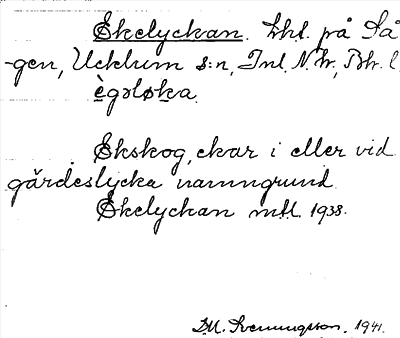 Ekelyckan. Lht. på Få
-gen, Ucklum s:n, Inl. N. hr., Bhl.
ègəløka.
Ekskog, ekar i eller vid
gärdeslycka namngrund.
Ekelyckan mtl. 1938.
D. M. Svenungsson. 1941.